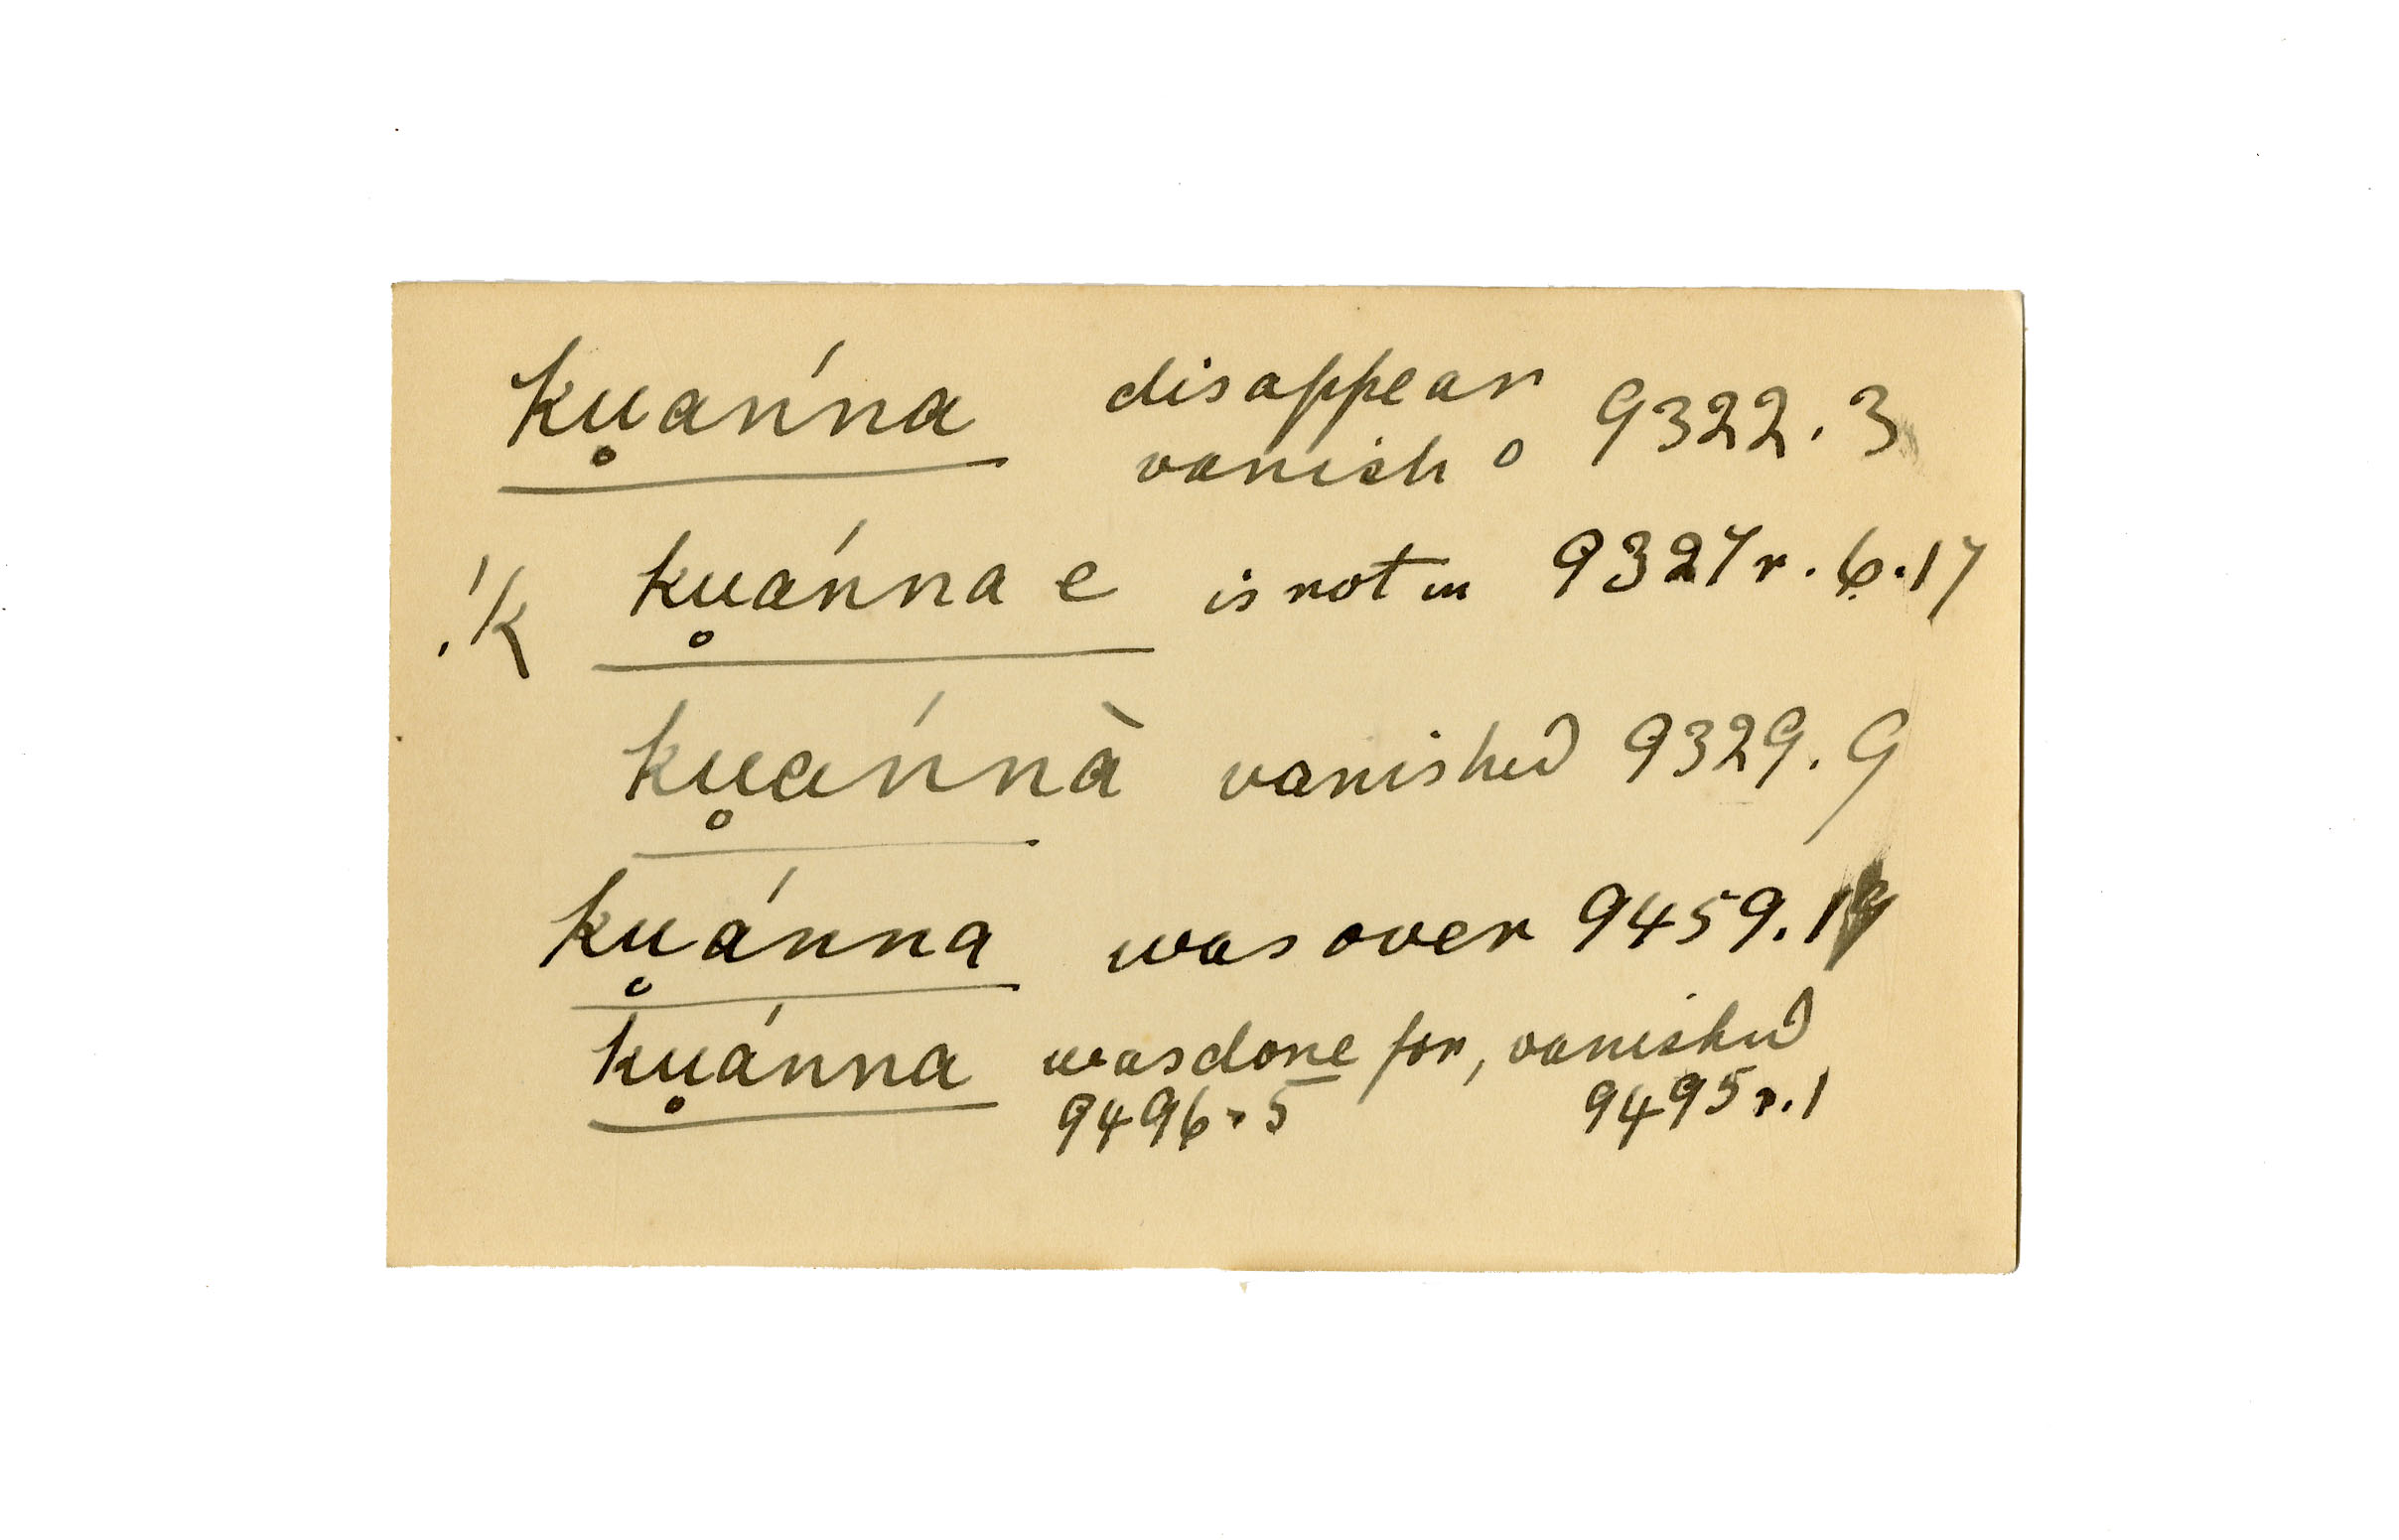 ku̥ánna disappear
vanish o 9322.3
.'k ku̥ánna e is not in 9327r.6.17
ku̥ánnà vanished 9329.9
ku̥ánna was over 9459.
ku̥ánna was done for, vanished
9496r5 9495r.1